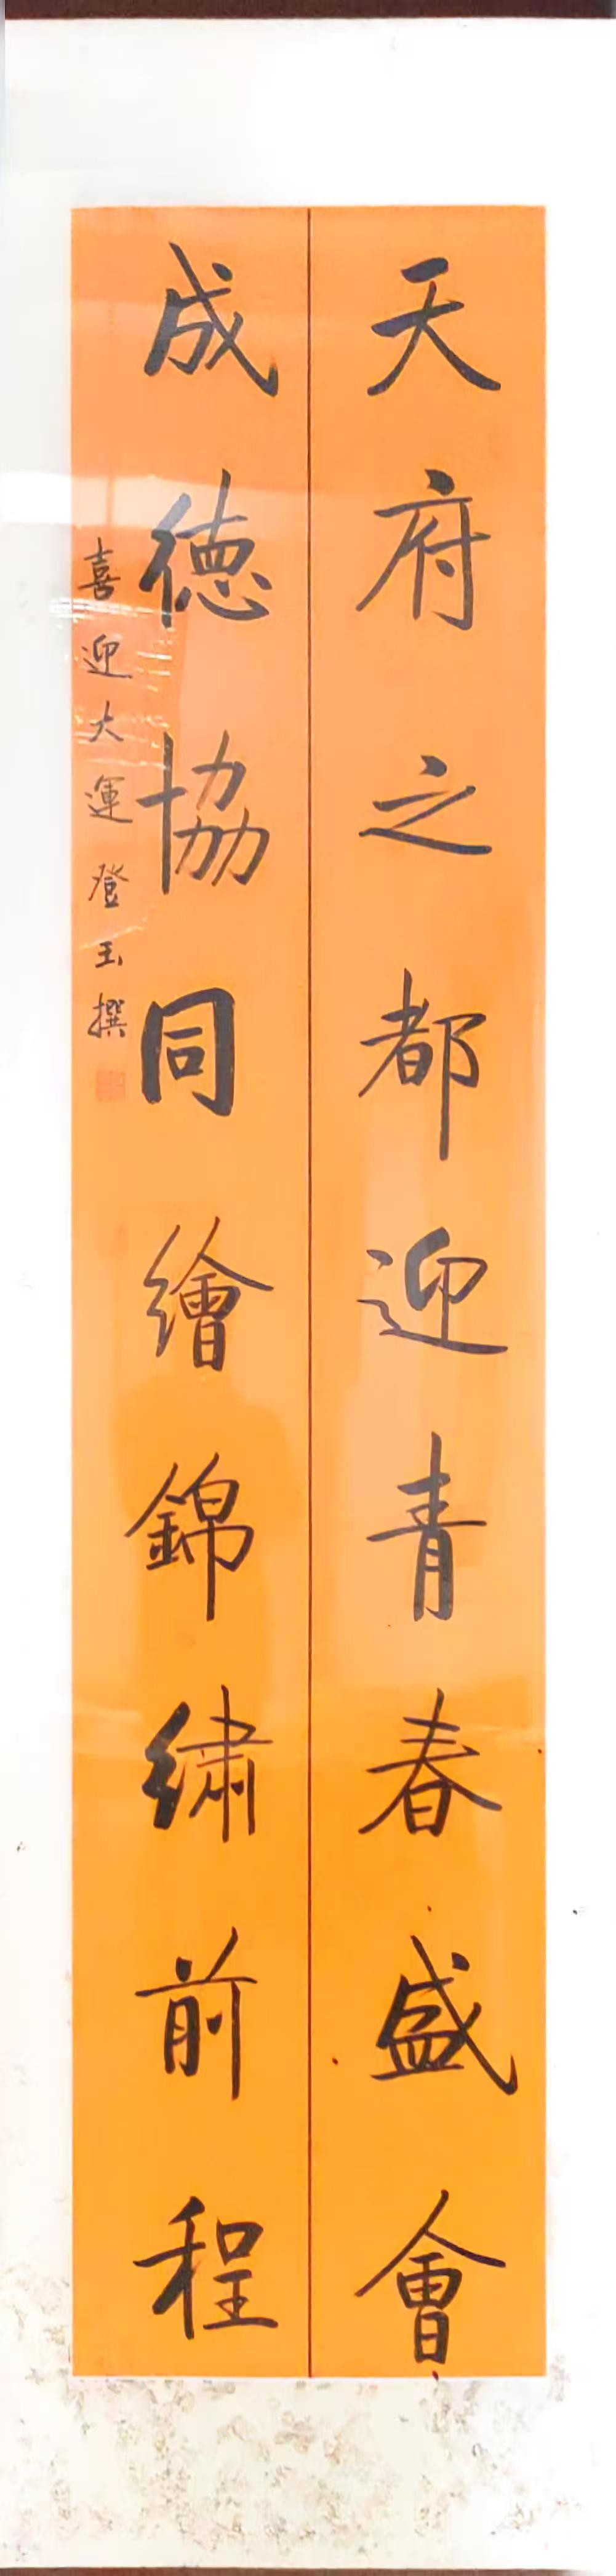 天府之都迎青春盛會
成德協同繪錦繡前程
喜迎大運 登玉撰